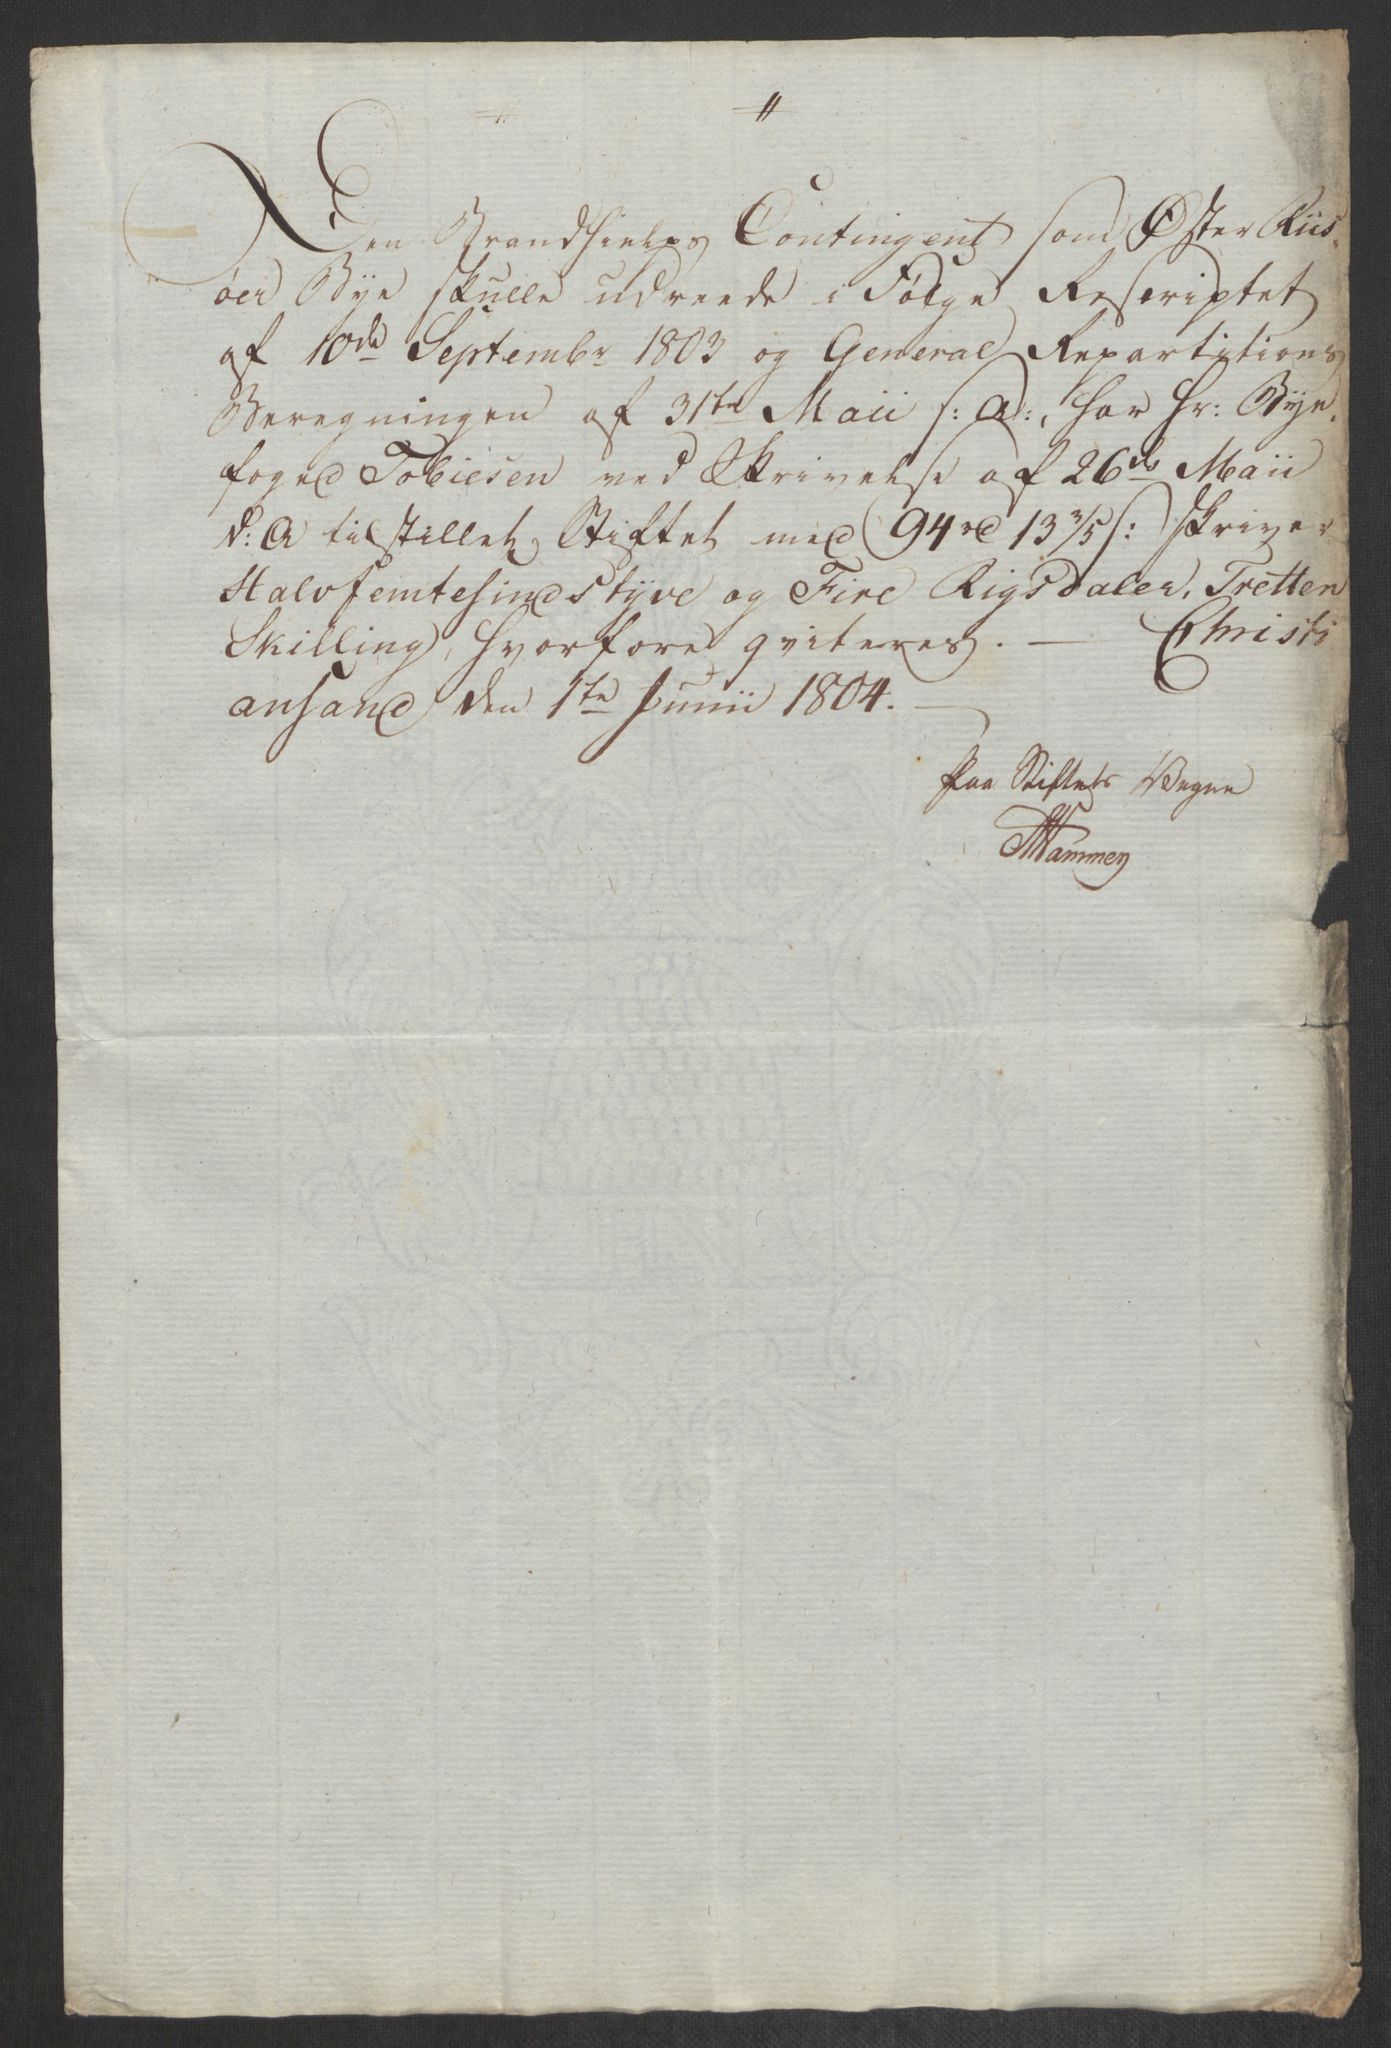 Den Brandhielps Contingent som Øster Riis-
öer Bye skulle udreede i Følge Rescriptet
af 10de Septembr 1803 og General Repartitions
Beregningen af 31te Maii s: A:, har Hr: Bye-
foged Tobiesen ved Skrivelse af 26de Maii
d: A tilstillet Stiftet med 94 rd 13 3/5 s: skriver
Halvfemtesindstyve og Fire Rigsdaler, Tretten
Skilling, hvorfore qviteres. — Christi
ansand den 1te Junii 1804. —
Paa Stiftets Vegne
Wammen